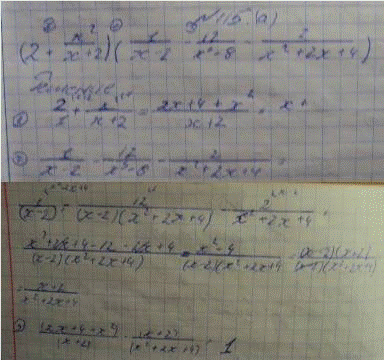 №115. (а)
(2 + x²/(x+2)) (1/(x-2) - 12/(x³-8) - 2/(x²+2x+4))
Решение
① 2/1 + x²/(x+2) = (2x+4+x²)/(x+2)
② 1/(x-2) - 12/(x³-8) - 2/(x²+2x+4) =
1/(x-2) - 12/((x-2)(x²+2x+4)) - 2/(x²+2x+4) =
(x²+2x+4-12-2x+4)/((x-2)(x²+2x+4)) = (x²-4)/((x-2)(x²+2x+4)) = ((x-2)(x+2))/((x-2)(x²+2x+4))
= (x+2)/(x²+2x+4)
③ (2x+4+x²)/(x+2) · (x+2)/(x²+2x+4) = 1